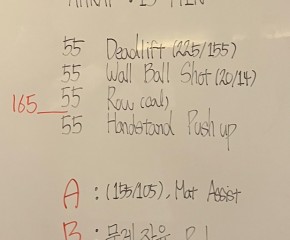 AMRAP : 15 MIN
55 Deadlift (225/155)
55 Wall Ball Shot (20/14)
165 55 Row (cal)
55 Handstand Push up
A : (155/105), Mat Assist
B : 무게 자유